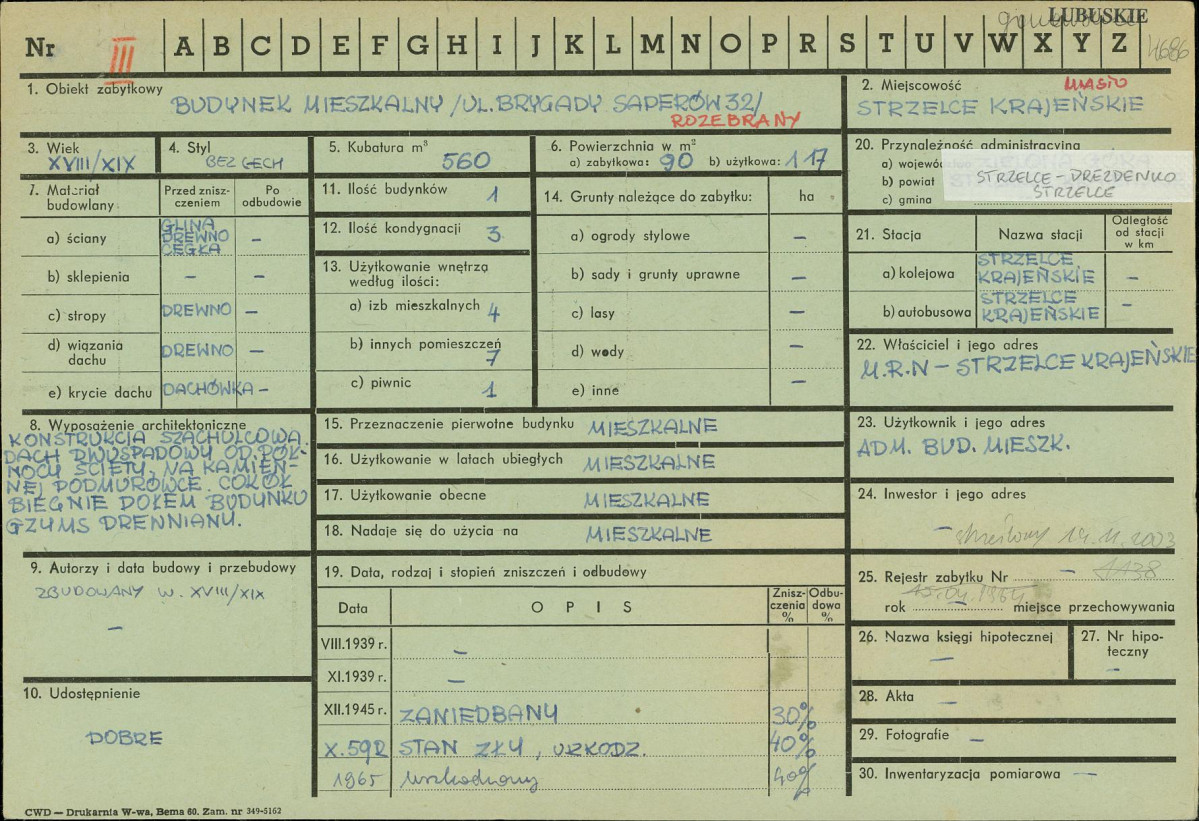 LUBUSKIE
Nr III A B C D E F G H I J K L M N O P R S T U V W X Y Z 4686
1. Obiekt zabytkowy
BUDYNEK MIESZKALNY /UL. BRYGADY SAPERÓW 32/
ROZEBRANY
2. Miejscowość MIASTO
STRZELCE KRAJEŃSKIE
3. Wiek
XVIII/XIX
4. Styl
BEZ CECH
5. Kubatura m³
560
6. Powierzchnia w m²
a) zabytkowa: 90 b) użytkowa: 117
7. Materiał budowlany
Przed zniszczeniem
Po odbudowie
a) ściany GLINA DREWNO CEGŁA –
b) sklepienia – –
c) stropy DREWNO –
d) wiązania dachu DREWNO –
e) krycie dachu DACHÓWKA –
8. Wyposażenie architektoniczne
KONSTRUKCJA SZACHULCOWA.
DACH DWUSPADOWY OD PÓŁ-
NOCY ŚCIĘTY, NA KAMIEN-
NEJ PODMURÓWCE. COKÓŁ
BIEGNIE DOŁEM BUDYNKU
GZYMS DREWNIANY.
9. Autorzy i data budowy i przebudowy
ZBUDOWANY W. XVIII/XIX
–
10. Udostępnienie
DOBRE
11. Ilość budynków 1
12. Ilość kondygnacji 3
13. Użytkowanie wnętrza
według ilości:
a) izb mieszkalnych 4
b) innych pomieszczeń 7
c) piwnic 1
14. Grunty należące do zabytku: ha
a) ogrody stylowe –
b) sady i grunty uprawne –
c) lasy –
d) wody –
e) inne –
15. Przeznaczenie pierwotne budynku MIESZKALNE
16. Użytkowanie w latach ubiegłych MIESZKALNE
17. Użytkowanie obecne MIESZKALNE
18. Nadaje się do użycia na MIESZKALNE
19. Data, rodzaj i stopień zniszczeń i odbudowy
Data OPIS Zniszczenia % Odbudowa %
VIII.1939 r. –
XI.1939 r. –
XII.1945 r. ZANIEDBANY 30%
X.59R STAN ZŁY, USZKODZ. 40%
1965 uszkodzony 40%
20. Przynależność administracyjna
a) wojewód
b) powiat STRZELCE-DREZDENKO
c) gmina STRZELCE
21. Stacja Nazwa stacji Odległość od stacji w km
a) kolejowa STRZELCE KRAJEŃSKIE –
b) autobusowa STRZELCE KRAJEŃSKIE –
22. Właściciel i jego adres
M.R.N – STRZELCE KRAJEŃSKIE
23. Użytkownik i jego adres
ADM. BUD. MIESZK.
24. Inwestor i jego adres
– skreślony 19.11.2003
25. Rejestr zabytku Nr – 1138
15.04.1964
rok – miejsce przechowywania
26. Nazwa księgi hipotecznej
–
27. Nr hipoteczny
–
28. Akta –
29. Fotografie –
30. Inwentaryzacja pomiarowa –
CWD — Drukarnia W-wa, Bema 60. Zam. nr 349-5162